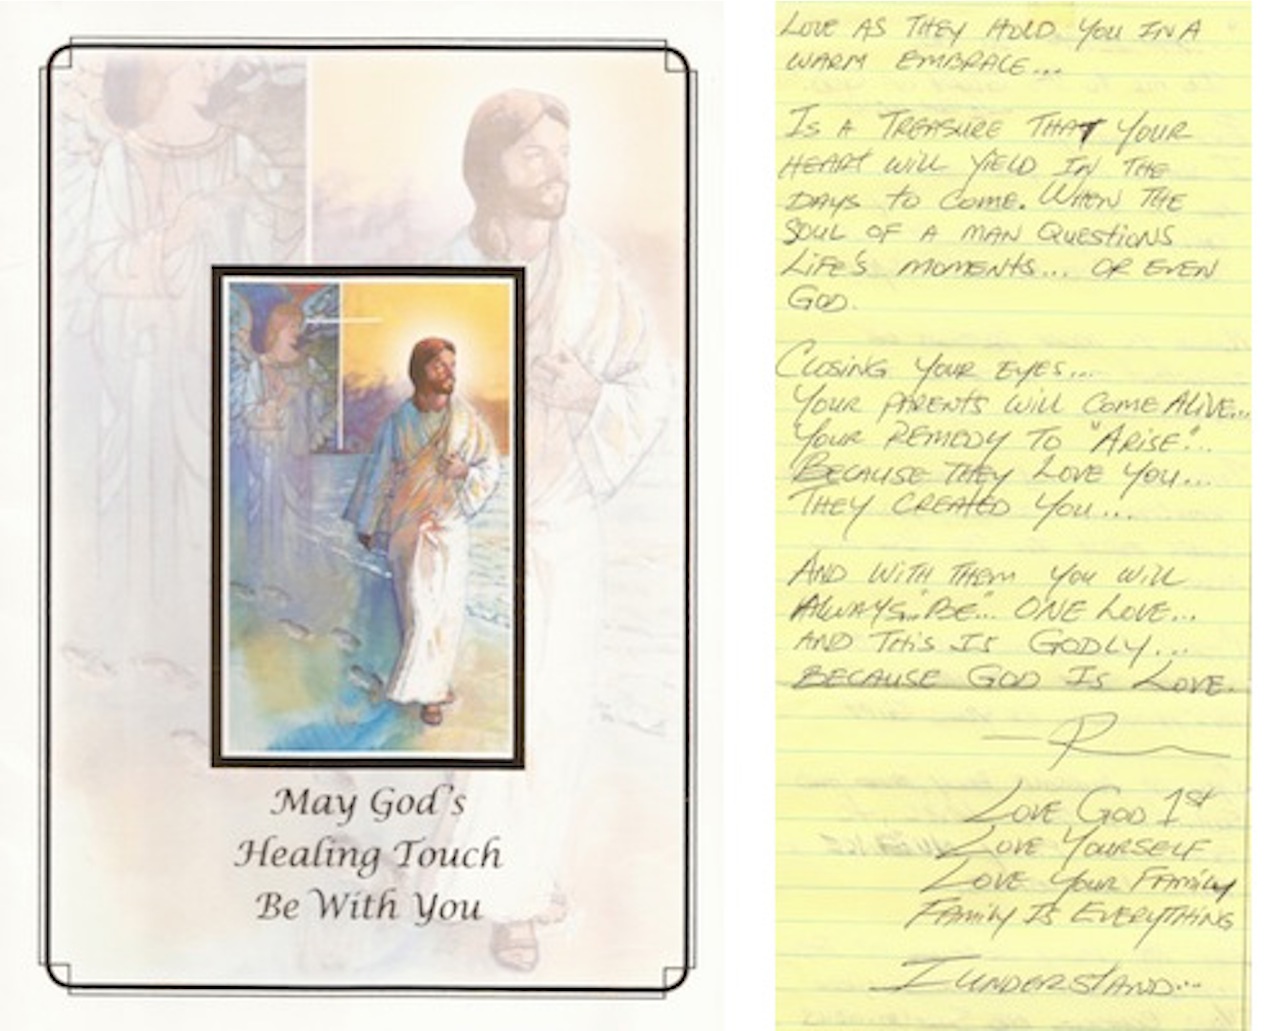 May God's
Healing Touch
Be With You
LOVE AS THEY HOLD YOU IN A
WARM EMBRACE...
IS A TREASURE THAT YOUR
HEART WILL YIELD IN THE
DAYS TO COME. WHEN THE
SOUL OF A MAN QUESTIONS
LIFE'S MOMENTS... OR EVEN
GOD.
CLOSING YOUR EYES...
YOUR PARENTS WILL COME ALIVE...
YOUR REMEDY TO "ARISE"...
BECAUSE THEY LOVE YOU...
THEY CREATED YOU...
AND WITH THEM YOU WILL
ALWAYS.."BE".. ONE LOVE...
AND THIS IS GODLY...
BECAUSE GOD IS LOVE.
— R
LOVE GOD 1st
LOVE YOURSELF
LOVE YOUR FAMILY
FAMILY IS EVERYTHING
I UNDERSTAND...